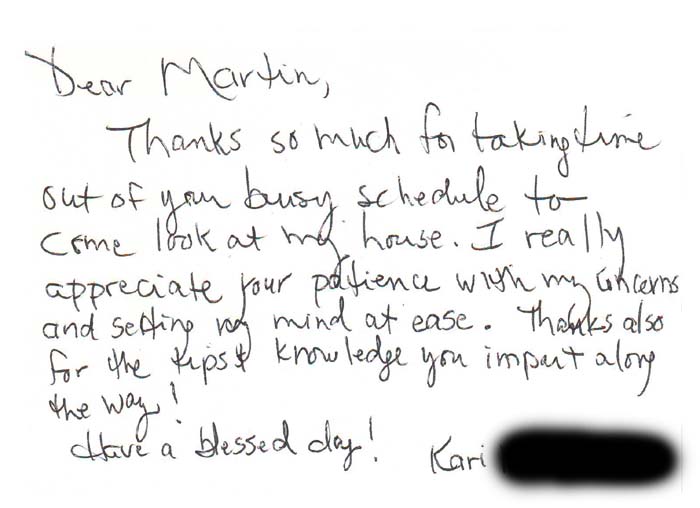 Dear Martin,
Thanks so much for taking time
out of your busy schedule to
come look at my house. I really
appreciate your patience with my concerns
and setting my mind at ease. Thanks also
for the tips & knowledge you impart along
the way!
Have a blessed day! Kari